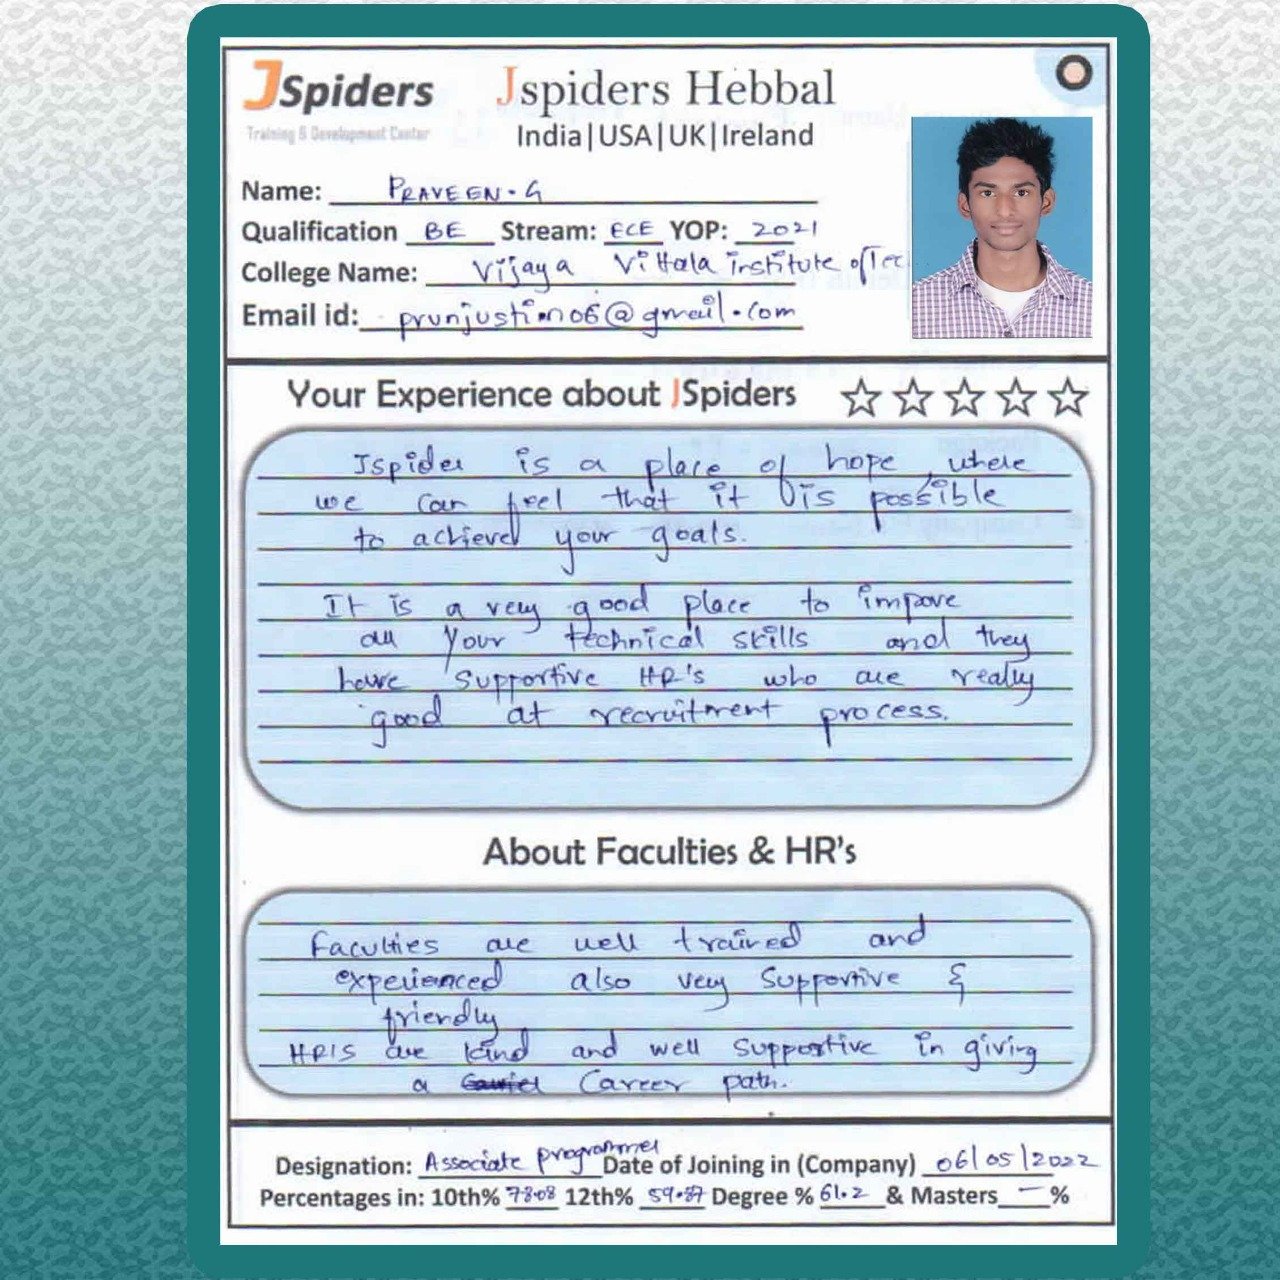 JSpiders
Training & Development Center
Jspiders Hebbal
India|USA|UK|Ireland
Name: PRAVEEN.G
Qualification BE Stream: ECE YOP: 2021
College Name: Vijaya Vittala institute of Tec
Email id: prunjustin06@gmail.com
Your Experience about JSpiders
Jspider is a place of hope, where
we can feel that it is possible
to achieved your goals.
It is a very good place to impove
all your technical skills and they
have supportive HR's who are really
good at recruitment process.
About Faculties & HR's
Faculties are well trained and
experienced also very supportive &
friendly
HR'S are kind and well supportive in giving
a Career path.
Designation: Associate programmer Date of Joining in (Company) 06/05/2022
Percentages in: 10th% 78.08 12th% 59.87 Degree % 61.2 & Masters — %